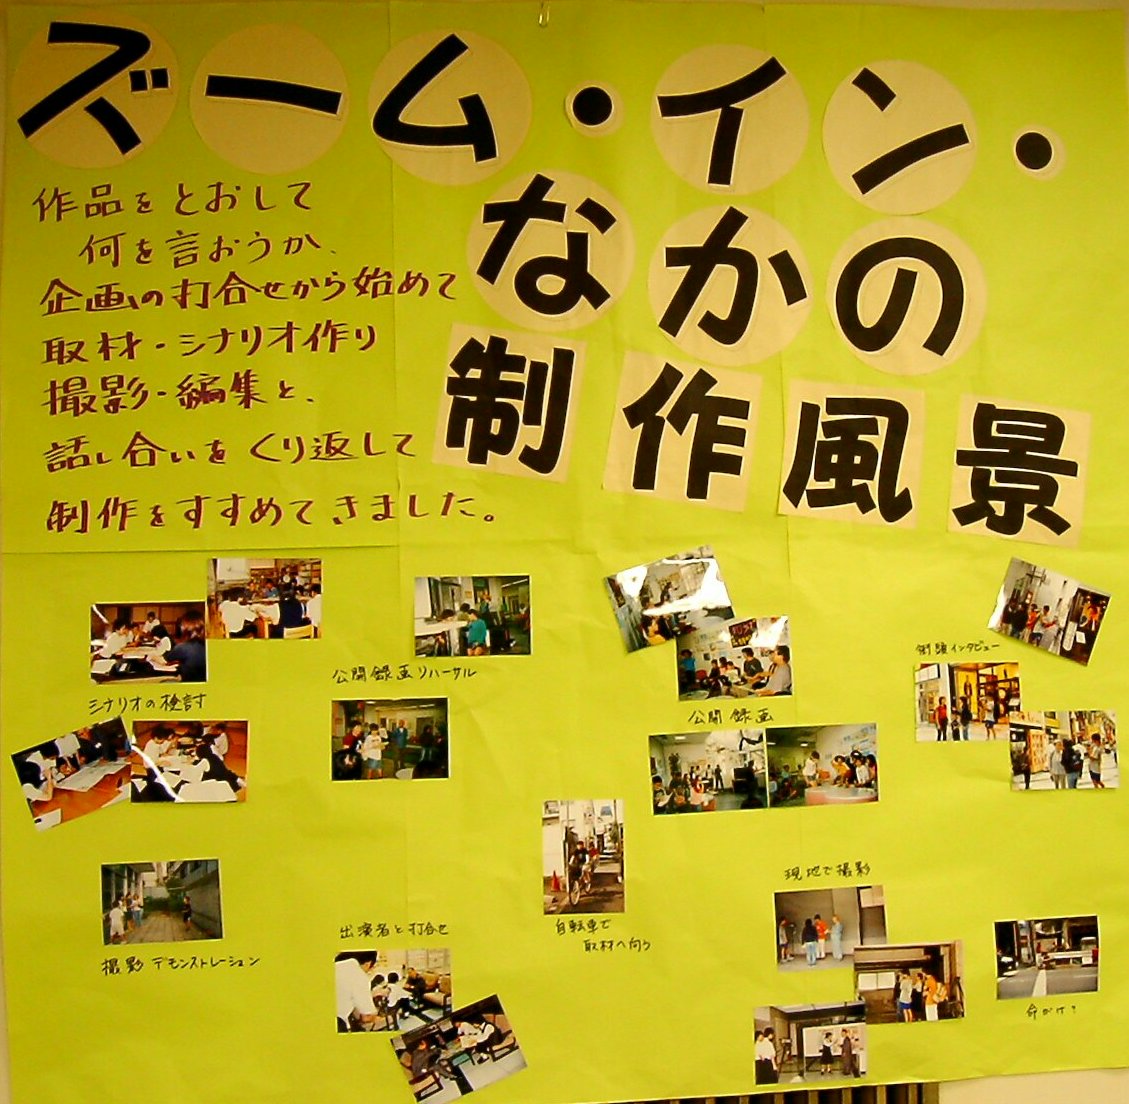 ズーム・イン・
なかの
制作風景
作品をとおして
何を言おうか、
企画の打合せから始めて
取材・シナリオ作り
撮影・編集と、
話し合いをくり返して
制作をすすめてきました。
シナリオの検討
公開録画リハーサル
公開録画
街頭インタビュー
撮影デモンストレーション
出演者と打合せ
自転車で
取材へ向う
現地で撮影
命がけ?